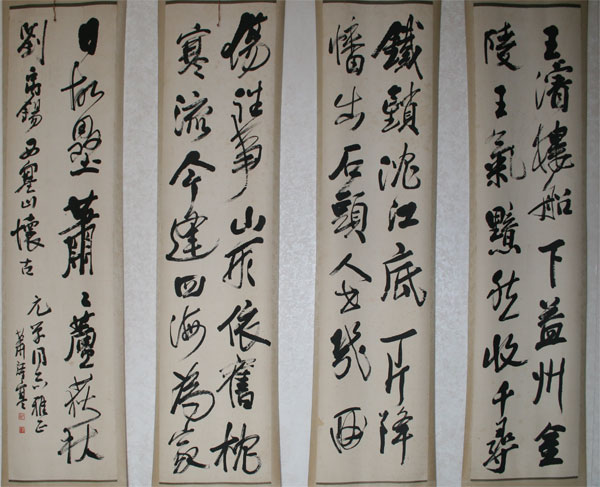 王濬樓船下益州金
陵王氣黯然收千尋
鐵鎖沈江底一片降
幡出石頭人世幾回
傷往事山形依舊枕
寒流今逢四海為家
日故壘蕭〻蘆荻秋
劉禹錫西塞山懷古
同志雅正
蕭